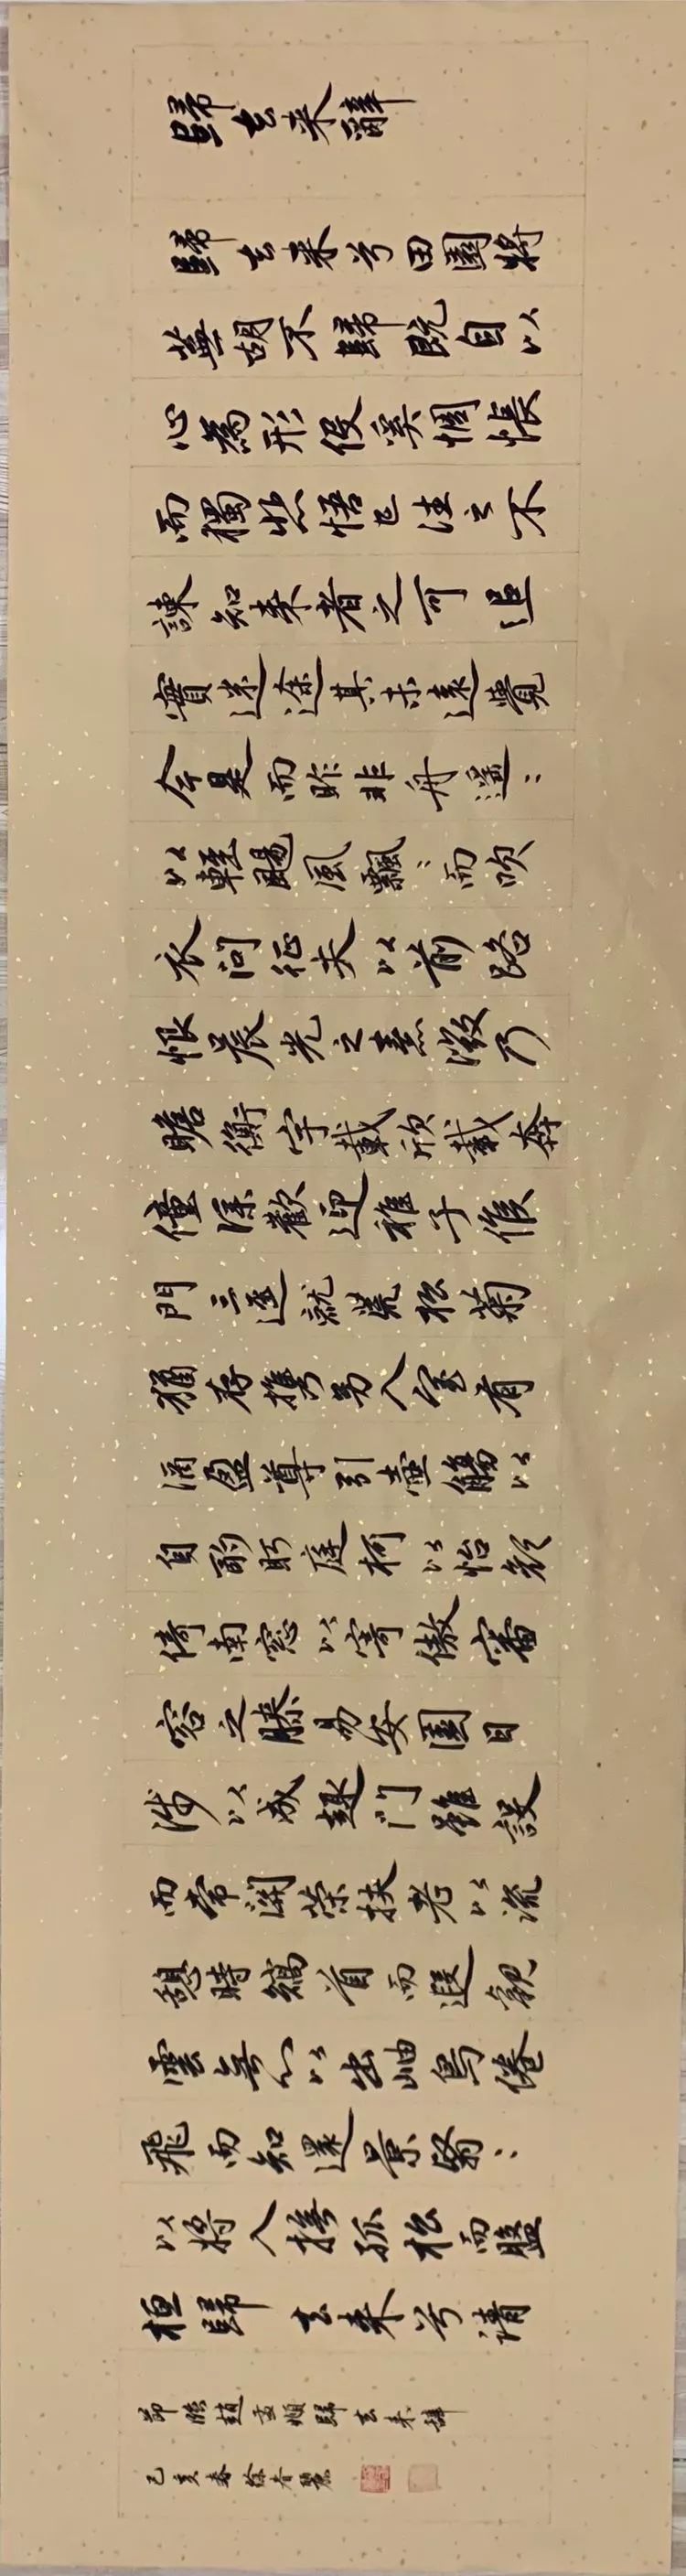 歸去来辭
歸去来兮田園將
蕪胡不歸既自以
心為形役奚惆悵
而獨悲悟已往之不
諫知来者之可追
實迷途其未遠覺
今是而昨非舟遥〻
以輕颺風飄〻而吹
衣問征夫以前路
恨晨光之熹微乃
瞻衡宇載欣載奔
僮僕歡迎稚子候
門三逕就荒松菊
猶存携幼入室有
酒盈尊引壺觴以
自酌眄庭柯以怡顔
倚南窓以寄傲審
容之膝易安園日
涉以成趣門雖設
而常關策扶老以流
憩時矯首而遐觀
雲無心以出岫鳥倦
飛而知還景翳〻
以將入撫孤松而盤
桓歸去来兮請
節臨趙孟頫歸去来辭
己亥春徐春